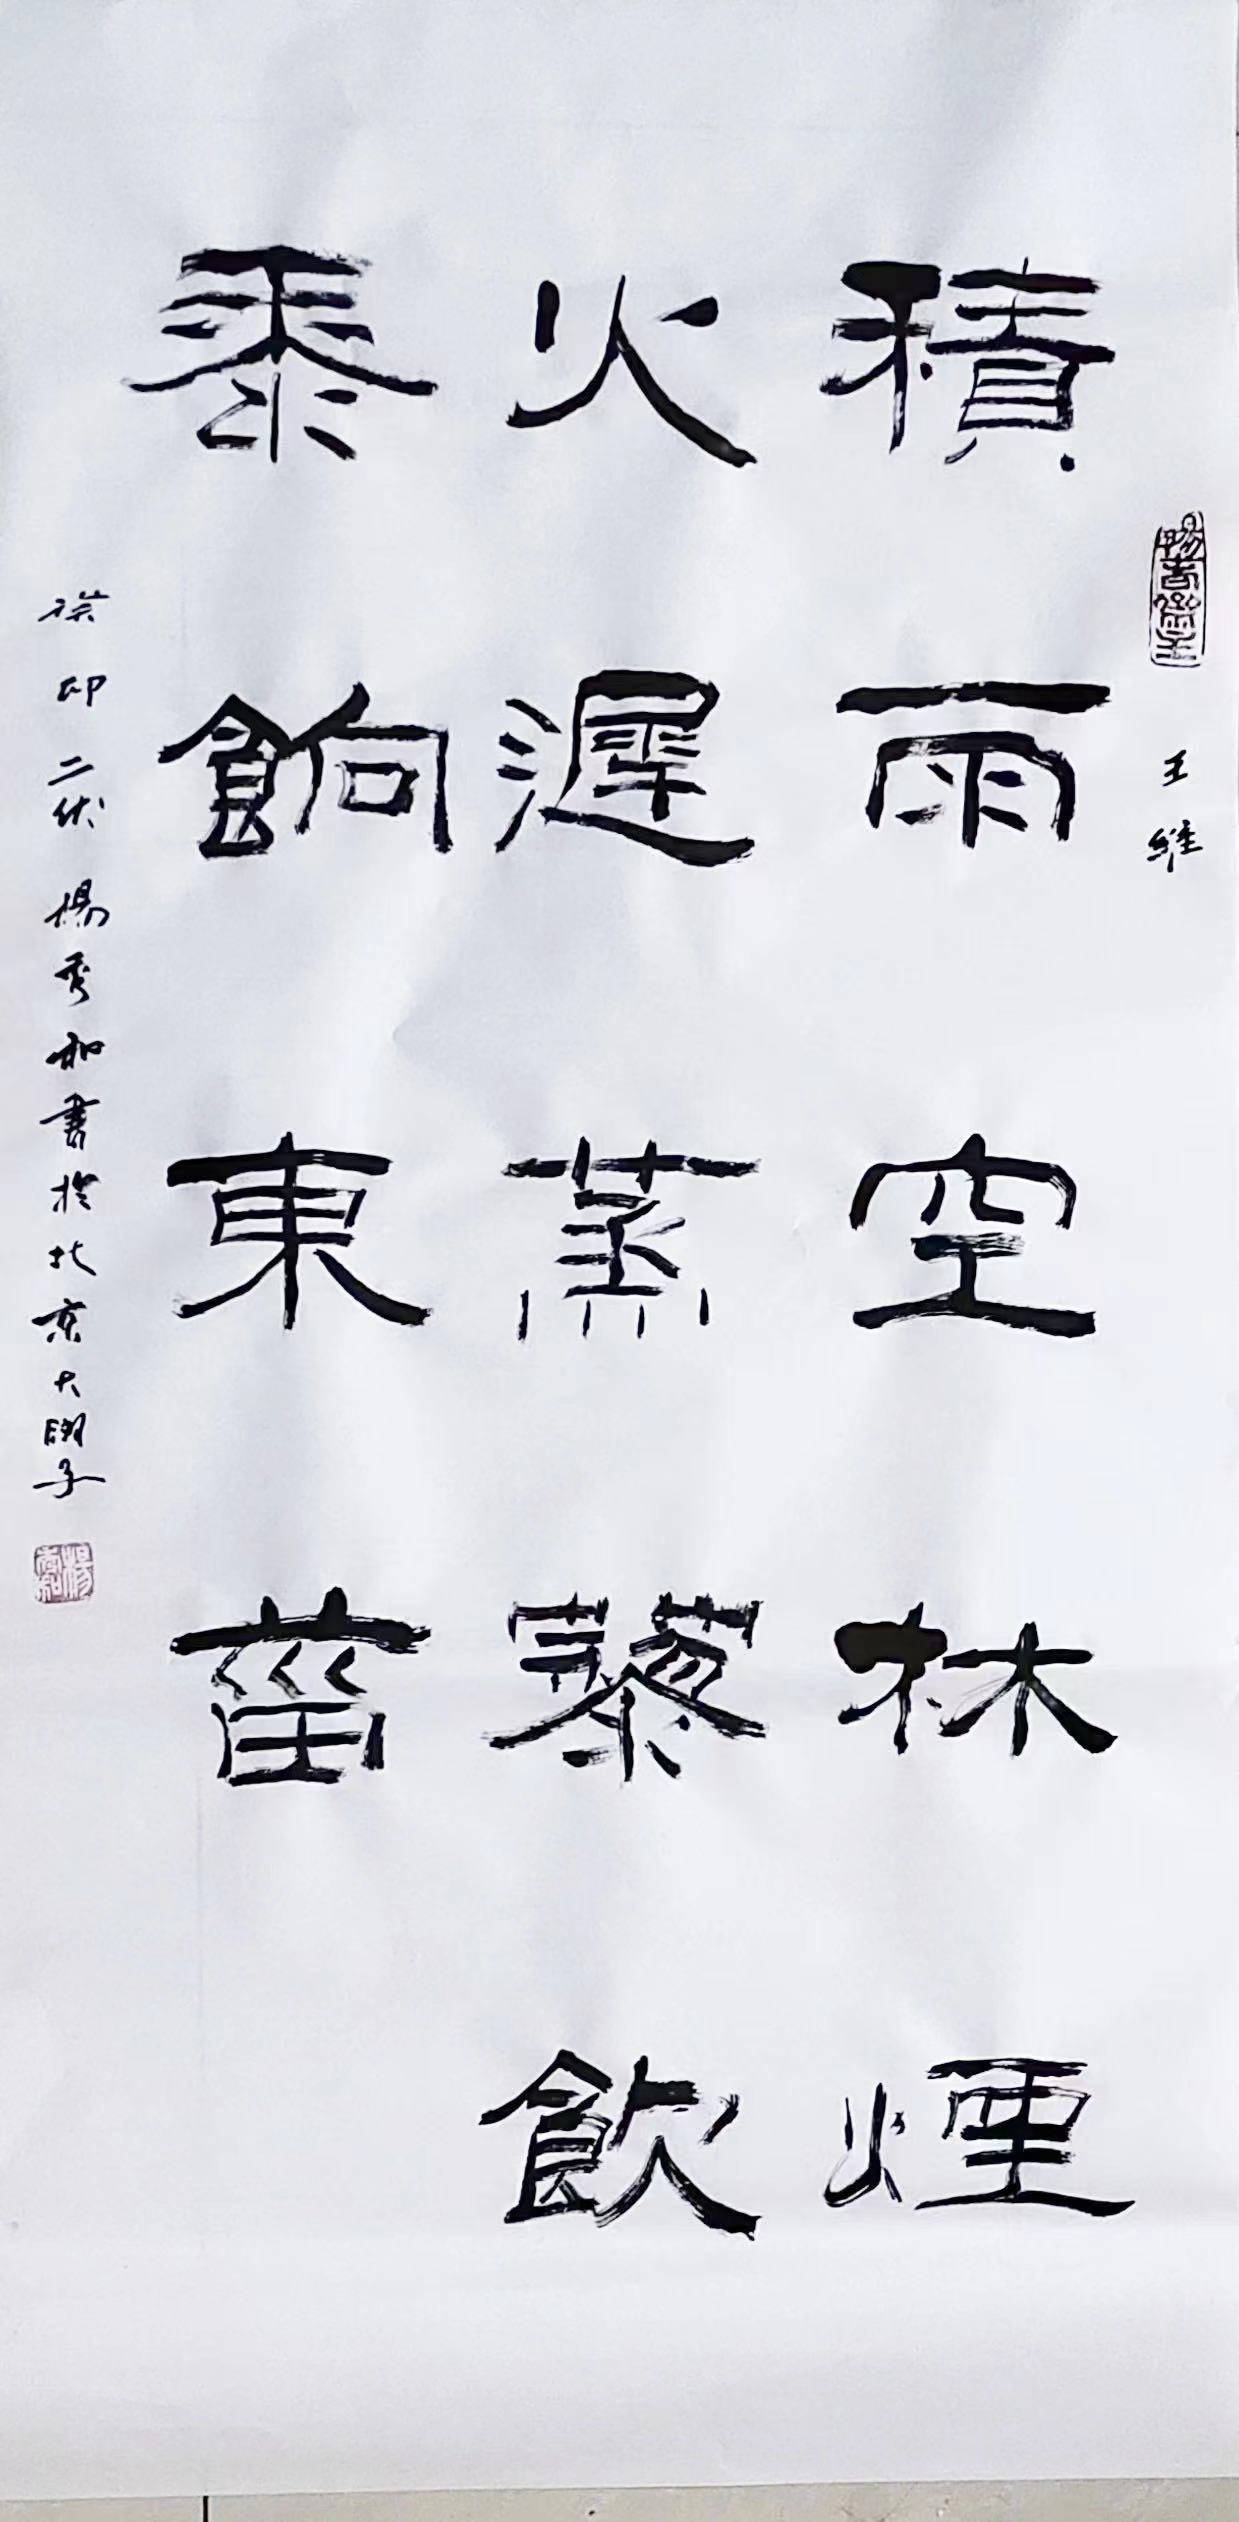 王維
積雨空林煙
火遲蒸藜飲
黍餉東菑
癸卯二伏楊秀和書於北京大子
楊秀和